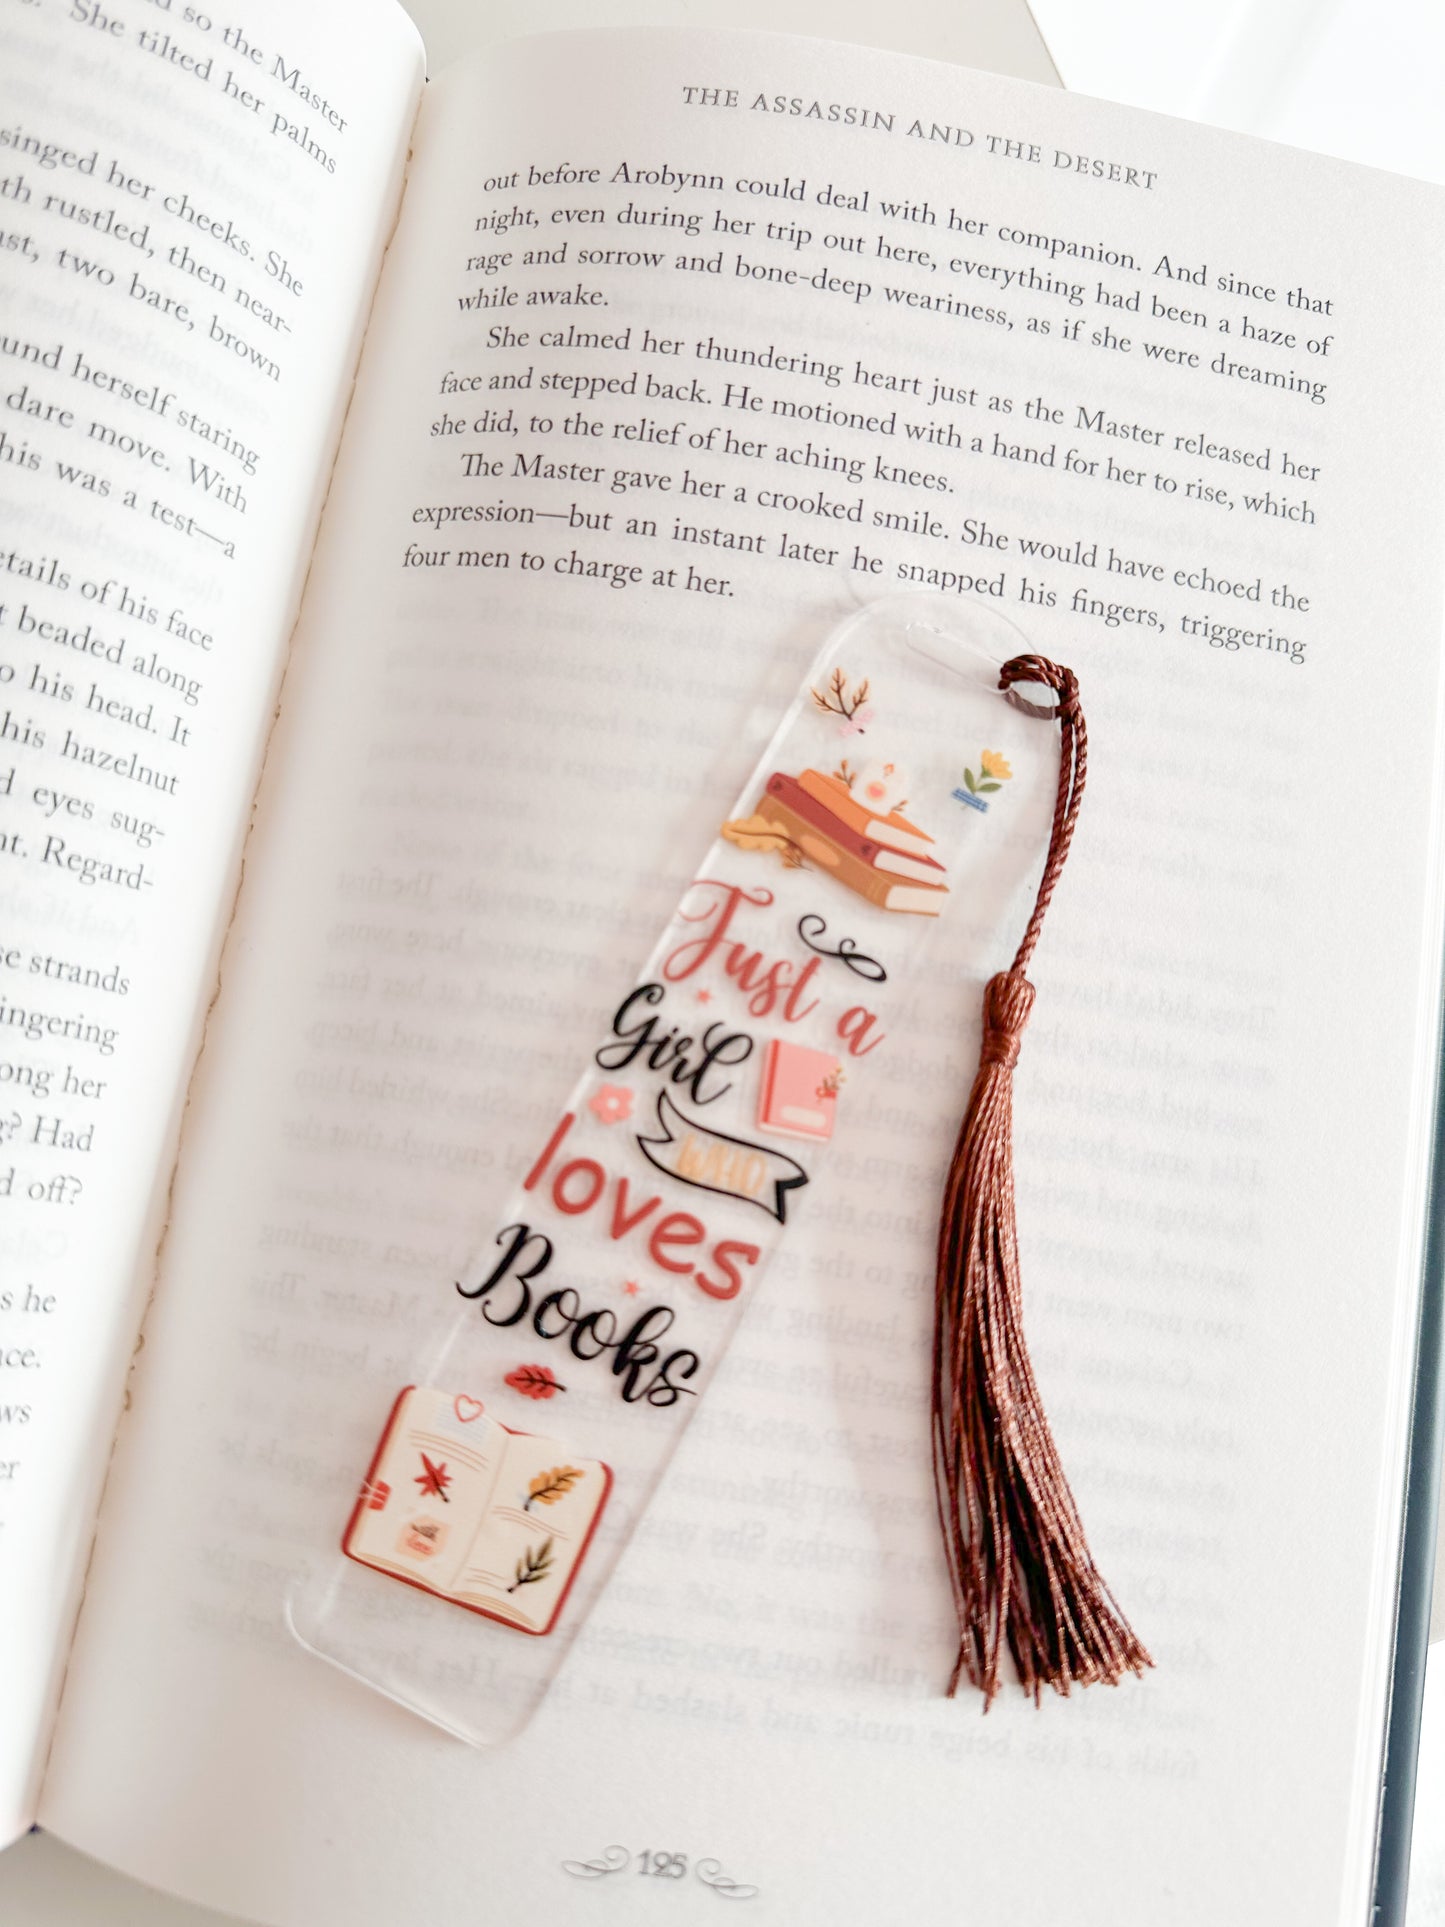 d so the Master
She tilted her palms
singed her cheeks. She
th rustled, then near-
ast, two bare, brown
und herself staring
dare move. With
his was a test—a
etails of his face
t beaded along
o his head. It
his hazelnut
d eyes sug-
nt. Regard-
se strands
ingering
ong her
g? Had
d off?
s he
ce.
ws
er
THE ASSASSIN AND THE DESERT
out before Arobynn could deal with her companion. And since that
night, even during her trip out here, everything had been a haze of
rage and sorrow and bone-deep weariness, as if she were dreaming
while awake.
She calmed her thundering heart just as the Master released her
face and stepped back. He motioned with a hand for her to rise, which
she did, to the relief of her aching knees.
The Master gave her a crooked smile. She would have echoed the
expression—but an instant later he snapped his fingers, triggering
four men to charge at her.
Just a
Girl
WHO
loves
Books
195